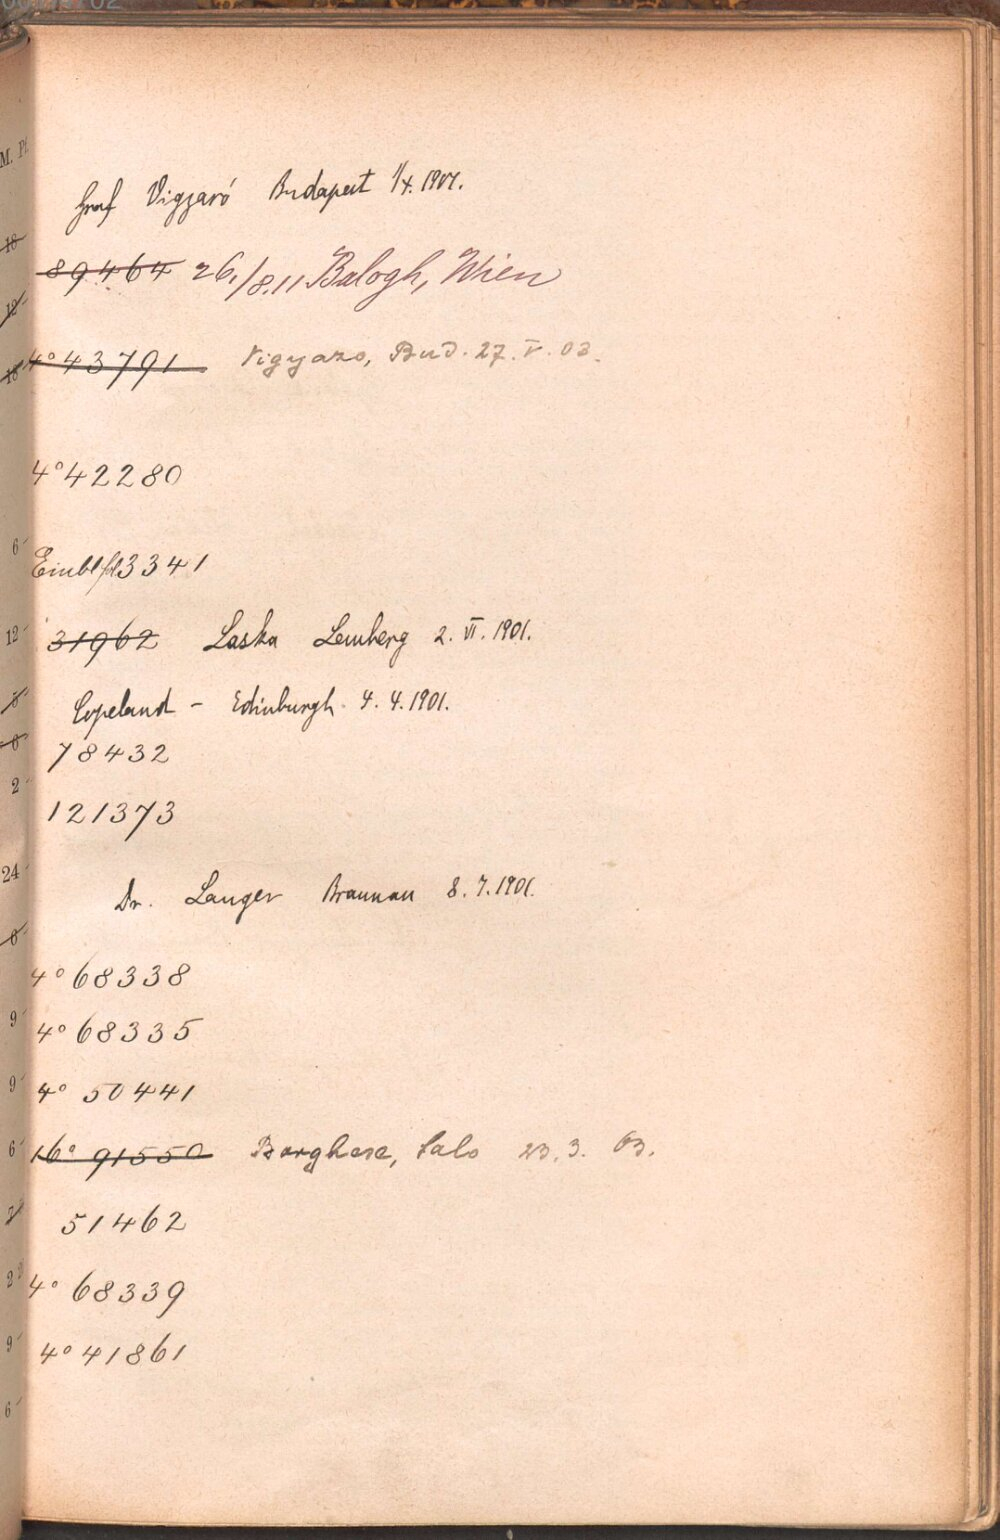 Graf Vigyazó Budapest 1/X. 1901.
89464 26./8.11 Balogh, Wien
4° 43791 Vigyazo, Bud. 27. V. 03.
4° 42280
Einbl 3341
31962 Laska Lemberg 2. VI. 1901.
Copeland – Edinburgh. 4. 4. 1901.
78432
121373
Dr. Langer Braunau 8. 7. 1901.
4° 68338
4° 68335
4° 50441
16° 91550 Borghese, Salo 23. 3. 03.
51462
4° 68339
4° 41861